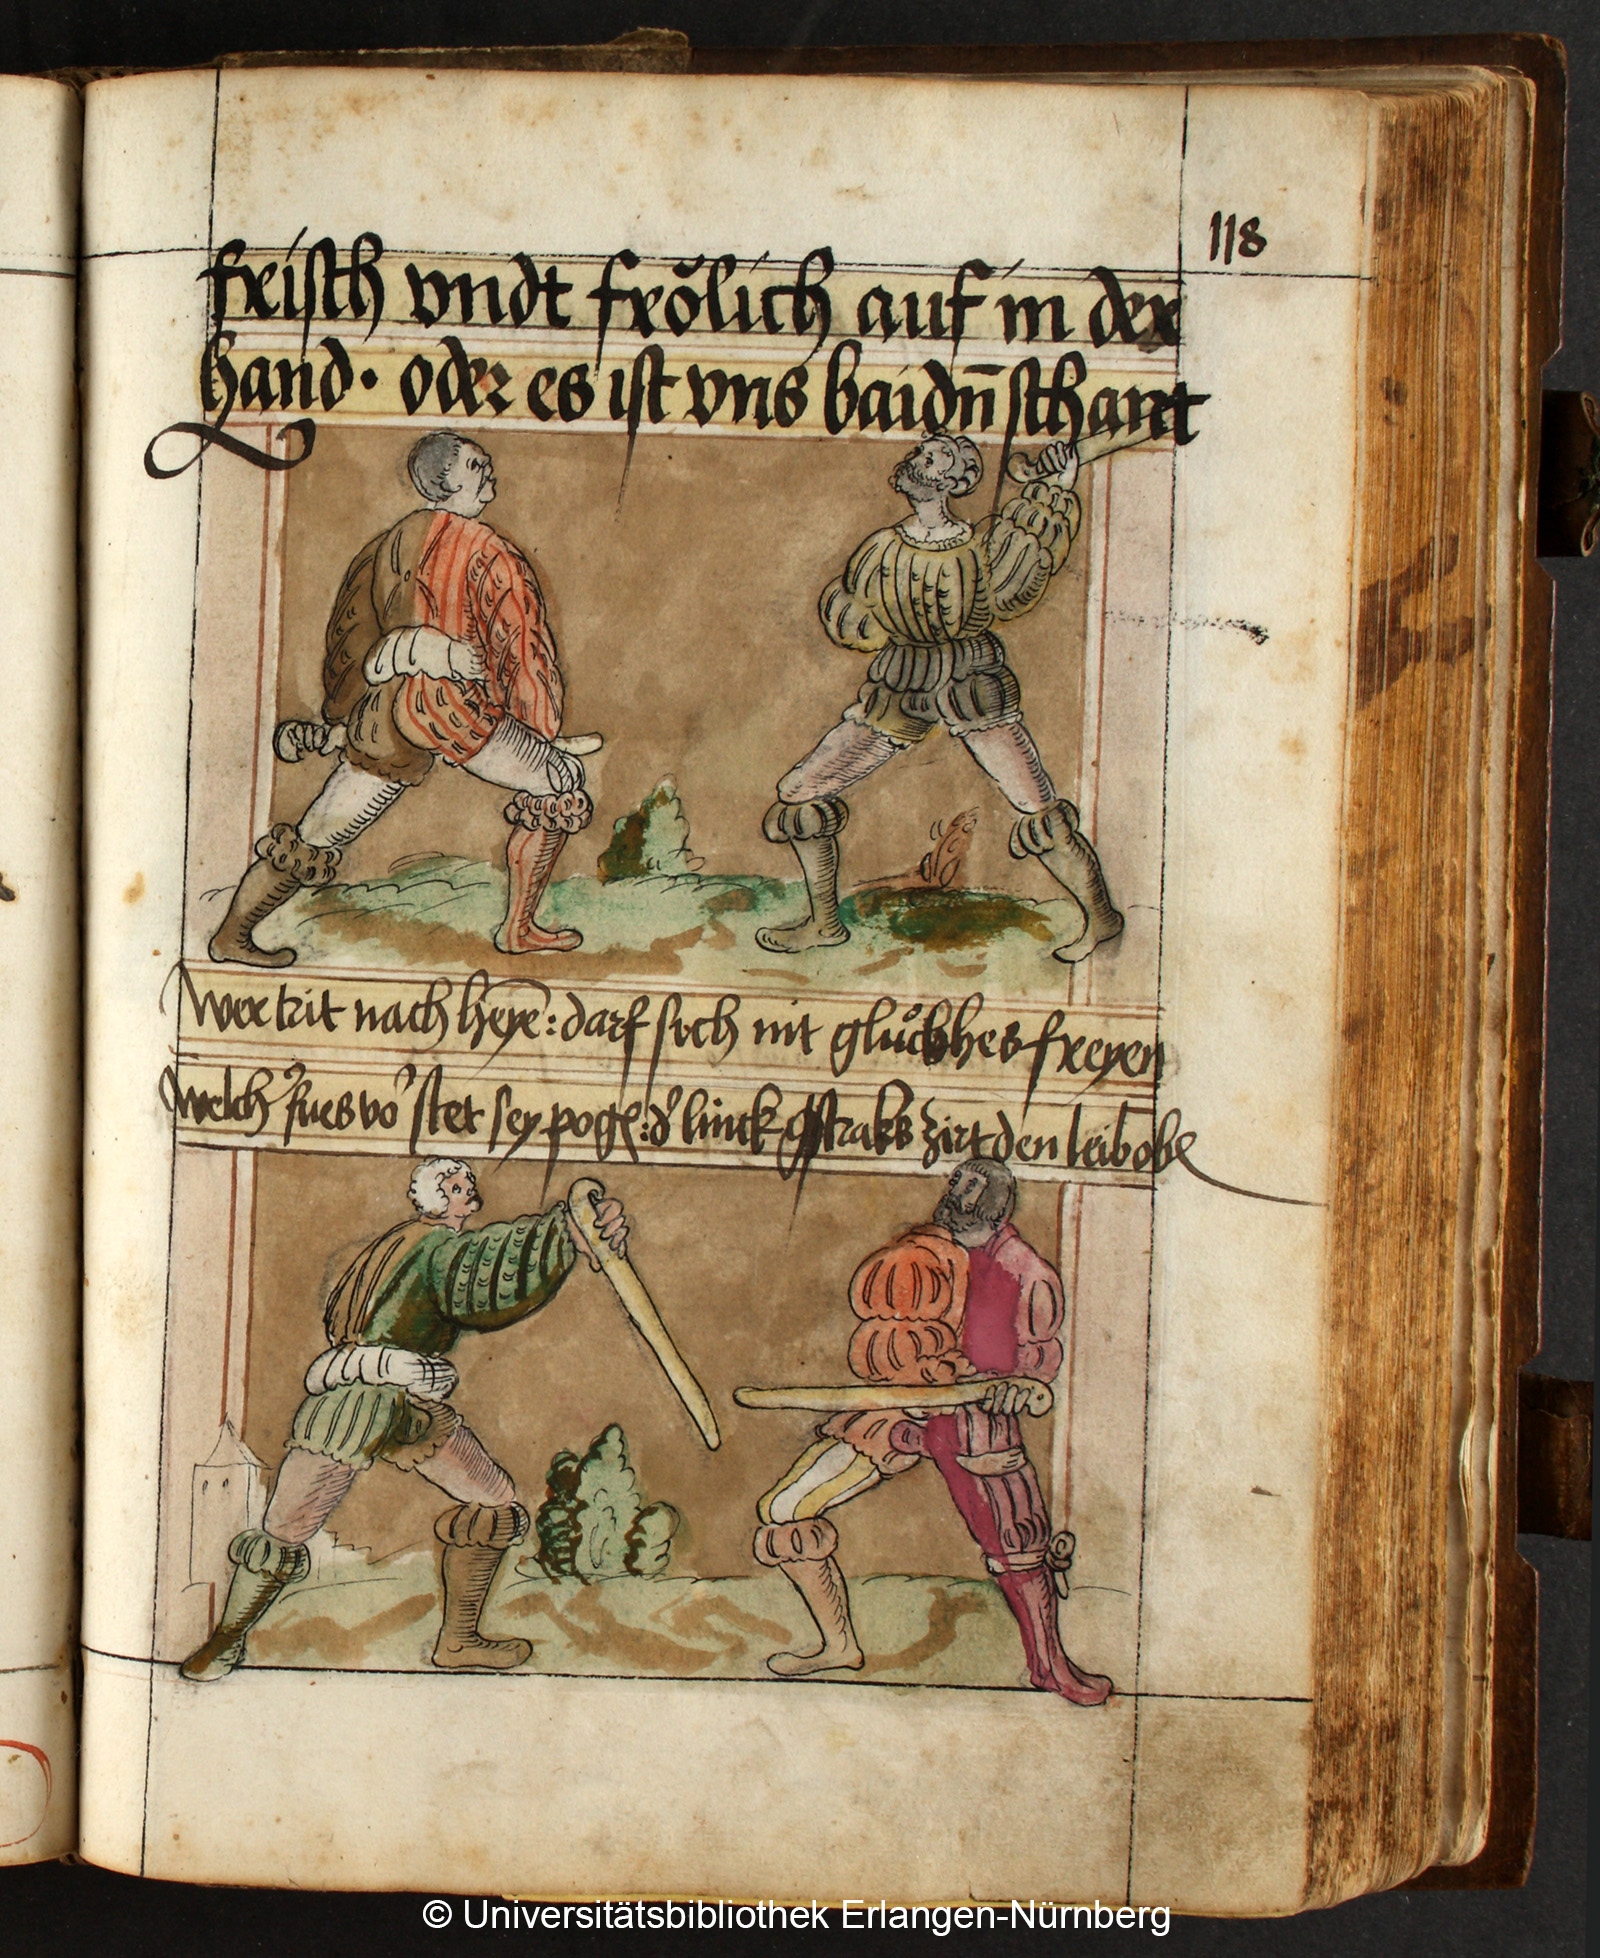 118
freisch vndt frölich auf in der
hand · oder es ist vns baidn̄ schant
wer trit nach heye : darf sich nit glückhes freyen
welch fues vo stet sey pogē : d linck gstraks zirt den leib
© Universitätsbibliothek Erlangen-Nürnberg